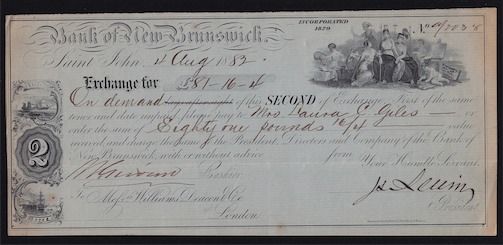 Bank of New Brunswick.
INCORPORATED
1820
No
Saint John, 4 Aug 1882.
Exchange for £81-16-4
On demand of this SECOND of Exchange First of the same
tenor and date unpaid, please pay to Mrs. Laura C. Giles
or
order the sum of Eighty one pounds 16/4 value
received and charge the same to the President, Directors and Company of the Bank of
New Brunswick, with or without advice from Your Humble Servant,
2
Cashier
To Messrs Williams, Deacon & Co
London.
President.